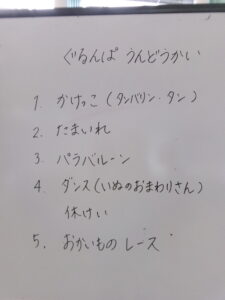 ぐるんぱ うんどうかい
1. かけっこ (タンバリン・タン)
2. たまいれ
3. パラバルーン
4. ダンス (いぬのおまわりさん)
休けい
5. おかいもの レース